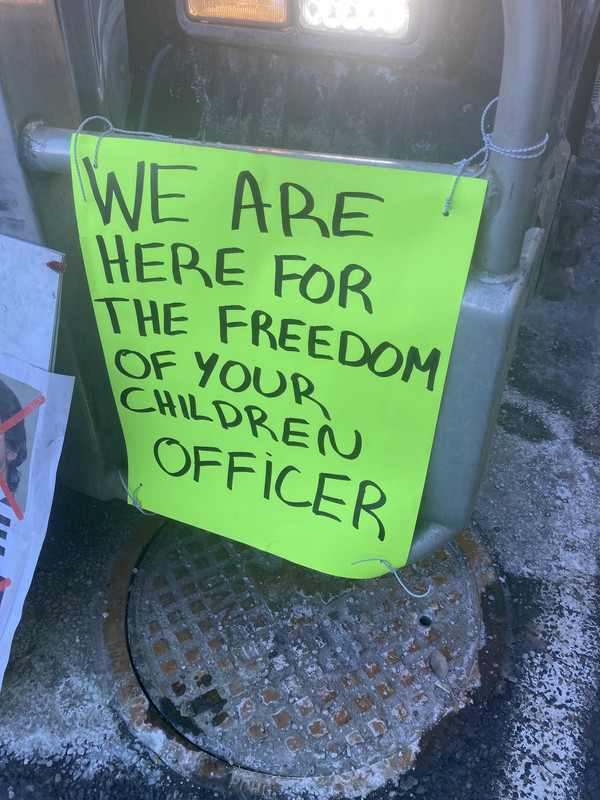 WE ARE
HERE FOR
THE FREEDOM
OF YOUR
CHILDREN
OFFiCER